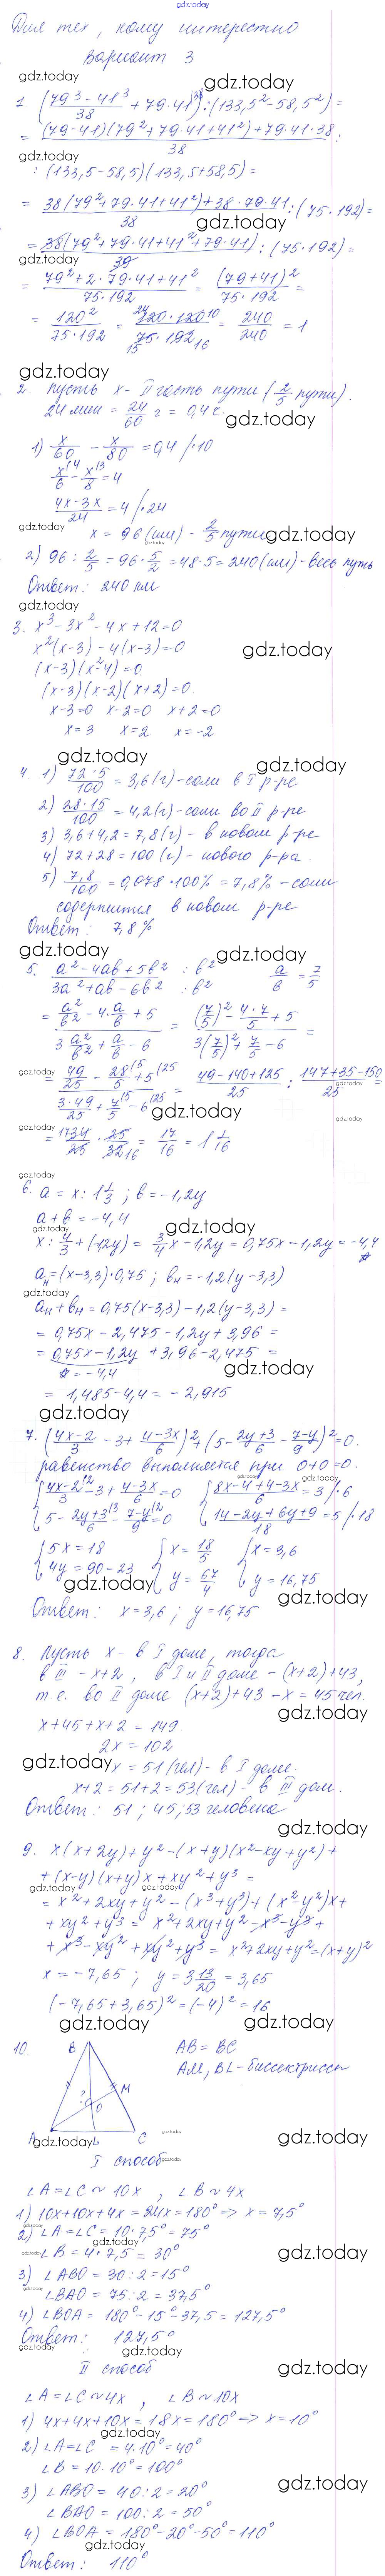 gdz.today
Для тех, кому интересно
Вариант 3
gdz.today
gdz.today
1. ((79³-41³)/38 + 79·41) : (133,5²-58,5²) =
= ((79-41)(79²+79·41+41²)+79·41·38)/38 :
gdz.today
: (133,5-58,5)(133,5+58,5) =
= (38(79²+79·41+41²)+38·79·41)/38 : (75·192) =
gdz.today
= 38(79²+79·41+41²+79·41)/38 : (75·192) =
gdz.today
= (79²+2·79·41+41²)/(75·192) = (79+41)²/(75·192) =
= 120²/(75·192) = (120·120)/(75·192) = 240/240 = 1
gdz.today
2. Пусть x - II часть пути (2/5 пути).
24 мин = 24/60 г = 0,4 ч.
gdz.today
1) x/60 - x/80 = 0,4 /·10
x/6 - x/8 = 4
(4x-3x)/24 = 4 /·24
gdz.today
x = 96 (км) - 2/5 пути
gdz.today
2) 96 : 2/5 = 96·5/2 = 48·5 = 240 (км) - весь путь
Ответ: 240 км
gdz.today
3. x³-3x²-4x+12=0
x²(x-3)-4(x-3)=0
gdz.today
(x-3)(x²-4)=0
(x-3)(x-2)(x+2)=0
x-3=0 x-2=0 x+2=0
x=3 x=2 x=-2
gdz.today
gdz.today
4. 1) (72·5)/100 = 3,6 (г) - соли в I р-ре
2) (28·15)/100 = 4,2 (г) - соли во II р-ре
3) 3,6+4,2=7,8 (г) - в новом р-ре
4) 72+28=100 (г) - нового р-ра.
5) 7,8/100 = 0,078·100% = 7,8% - соли
содержится в новом р-ре
Ответ: 7,8%
gdz.today
gdz.today
5. (a²-4ab+5b²)/(3a²+ab-6b²) :b² :b² a/b = 7/5
= (a²/b² - 4·a/b + 5)/(3a²/b² + a/b - 6) = ((7/5)² - 4·7/5 + 5)/(3(7/5)² + 7/5 - 6) =
gdz.today
= (49/25 - 28/5 + 5)/(3·49/25 + 7/5 - 6) = (49-140+125)/25 : (147+35-150)/25 =
gdz.today
gdz.today
gdz.today
= 34/25 · 25/32 = 17/16 = 1 1/16
gdz.today
6. a = x : 1 1/3 ; b = -1,2y
a+b = -4,4
gdz.today
gdz.today
x : 4/3 + (-1,2y) = 3/4x - 1,2y = 0,75x - 1,2y = -4,4
aн=(x-3,3)·0,75 ; bн=-1,2(y-3,3)
gdz.today
aн+bн=0,75(x-3,3)-1,2(y-3,3)=
= 0,75x-2,475-1,2y+3,96 =
= 0,75x-1,2y+3,96-2,475 =
gdz.today
= -4,4
= 1,485-4,4 = -2,915
gdz.today
7. ((4x-2)/3 - 3 + (4-3x)/6)² + (5 - (2y+3)/6 - (7-y)/9)² = 0.
равенство выполняется при 0+0=0.
gdz.today
{(4x-2)/3 - 3 + (4-3x)/6 = 0 {(8x-4+4-3x)/6 = 3 /·6
{5 - (2y+3)/6 - (7-y)/9 = 0 {(14-2y+6y+9)/18 = 5 /·18
{5x=18 {x=18/5 {x=3,6
{4y=90-23 {y=67/4 {y=16,75
gdz.today
gdz.today
Ответ: x=3,6 ; y=16,75
8. Пусть x - в I доме, тогда
в III - x+2, в I и II доме - (x+2)+43,
т.е. во II доме (x+2)+43-x = 45 чел.
gdz.today
x+45+x+2=149
2x=102
gdz.today
x=51 (чел) - в I доме.
x+2=51+2=53 (чел) - в III дом.
Ответ: 51 ; 45 ; 53 человека
gdz.today
9. x(x+2y)+y²-(x+y)(x²-xy+y²)+
+(x-y)(x+y)x+xy²+y³=
gdz.today
gdz.today
= x²+2xy+y²-(x³+y³)+(x²-y²)x+
+xy²+y³= x²+2xy+y²-x³-y³+
+x³-xy²+xy²+y³= x²+2xy+y²=(x+y)²
x = -7,65 ; y = 3 13/20 = 3,65
(-7,65+3,65)²=(-4)²=16
gdz.today
gdz.today
10. B AB=BC
AM, BL - биссектрисы
M
?
O
A L C
gdz.today
gdz.today
gdz.today
I способ
gdz.today
∠A=∠C~10x , ∠B~4x
1) 10x+10x+4x=24x=180°=> x=7,5°
gdz.today
2) ∠A=∠C=10·7,5°=75°
gdz.today
∠B=4·7,5=30°
gdz.today
3) ∠ABO=30:2=15°
gdz.today
∠BAO=75:2=37,5°
4) ∠BOA=180°-15°-37,5=127,5°
Ответ: 127,5°
gdz.today
gdz.today
II способ
gdz.today
∠A=∠C~4x , ∠B~10x
1) 4x+4x+10x=18x=180°=> x=10°
gdz.today
2) ∠A=∠C=4·10°=40°
∠B=10·10°=100°
gdz.today
3) ∠ABO=40:2=20°
∠BAO=100:2=50°
4) ∠BOA=180°-20°-50°=110°
gdz.today
Ответ: 110°
gdz.today